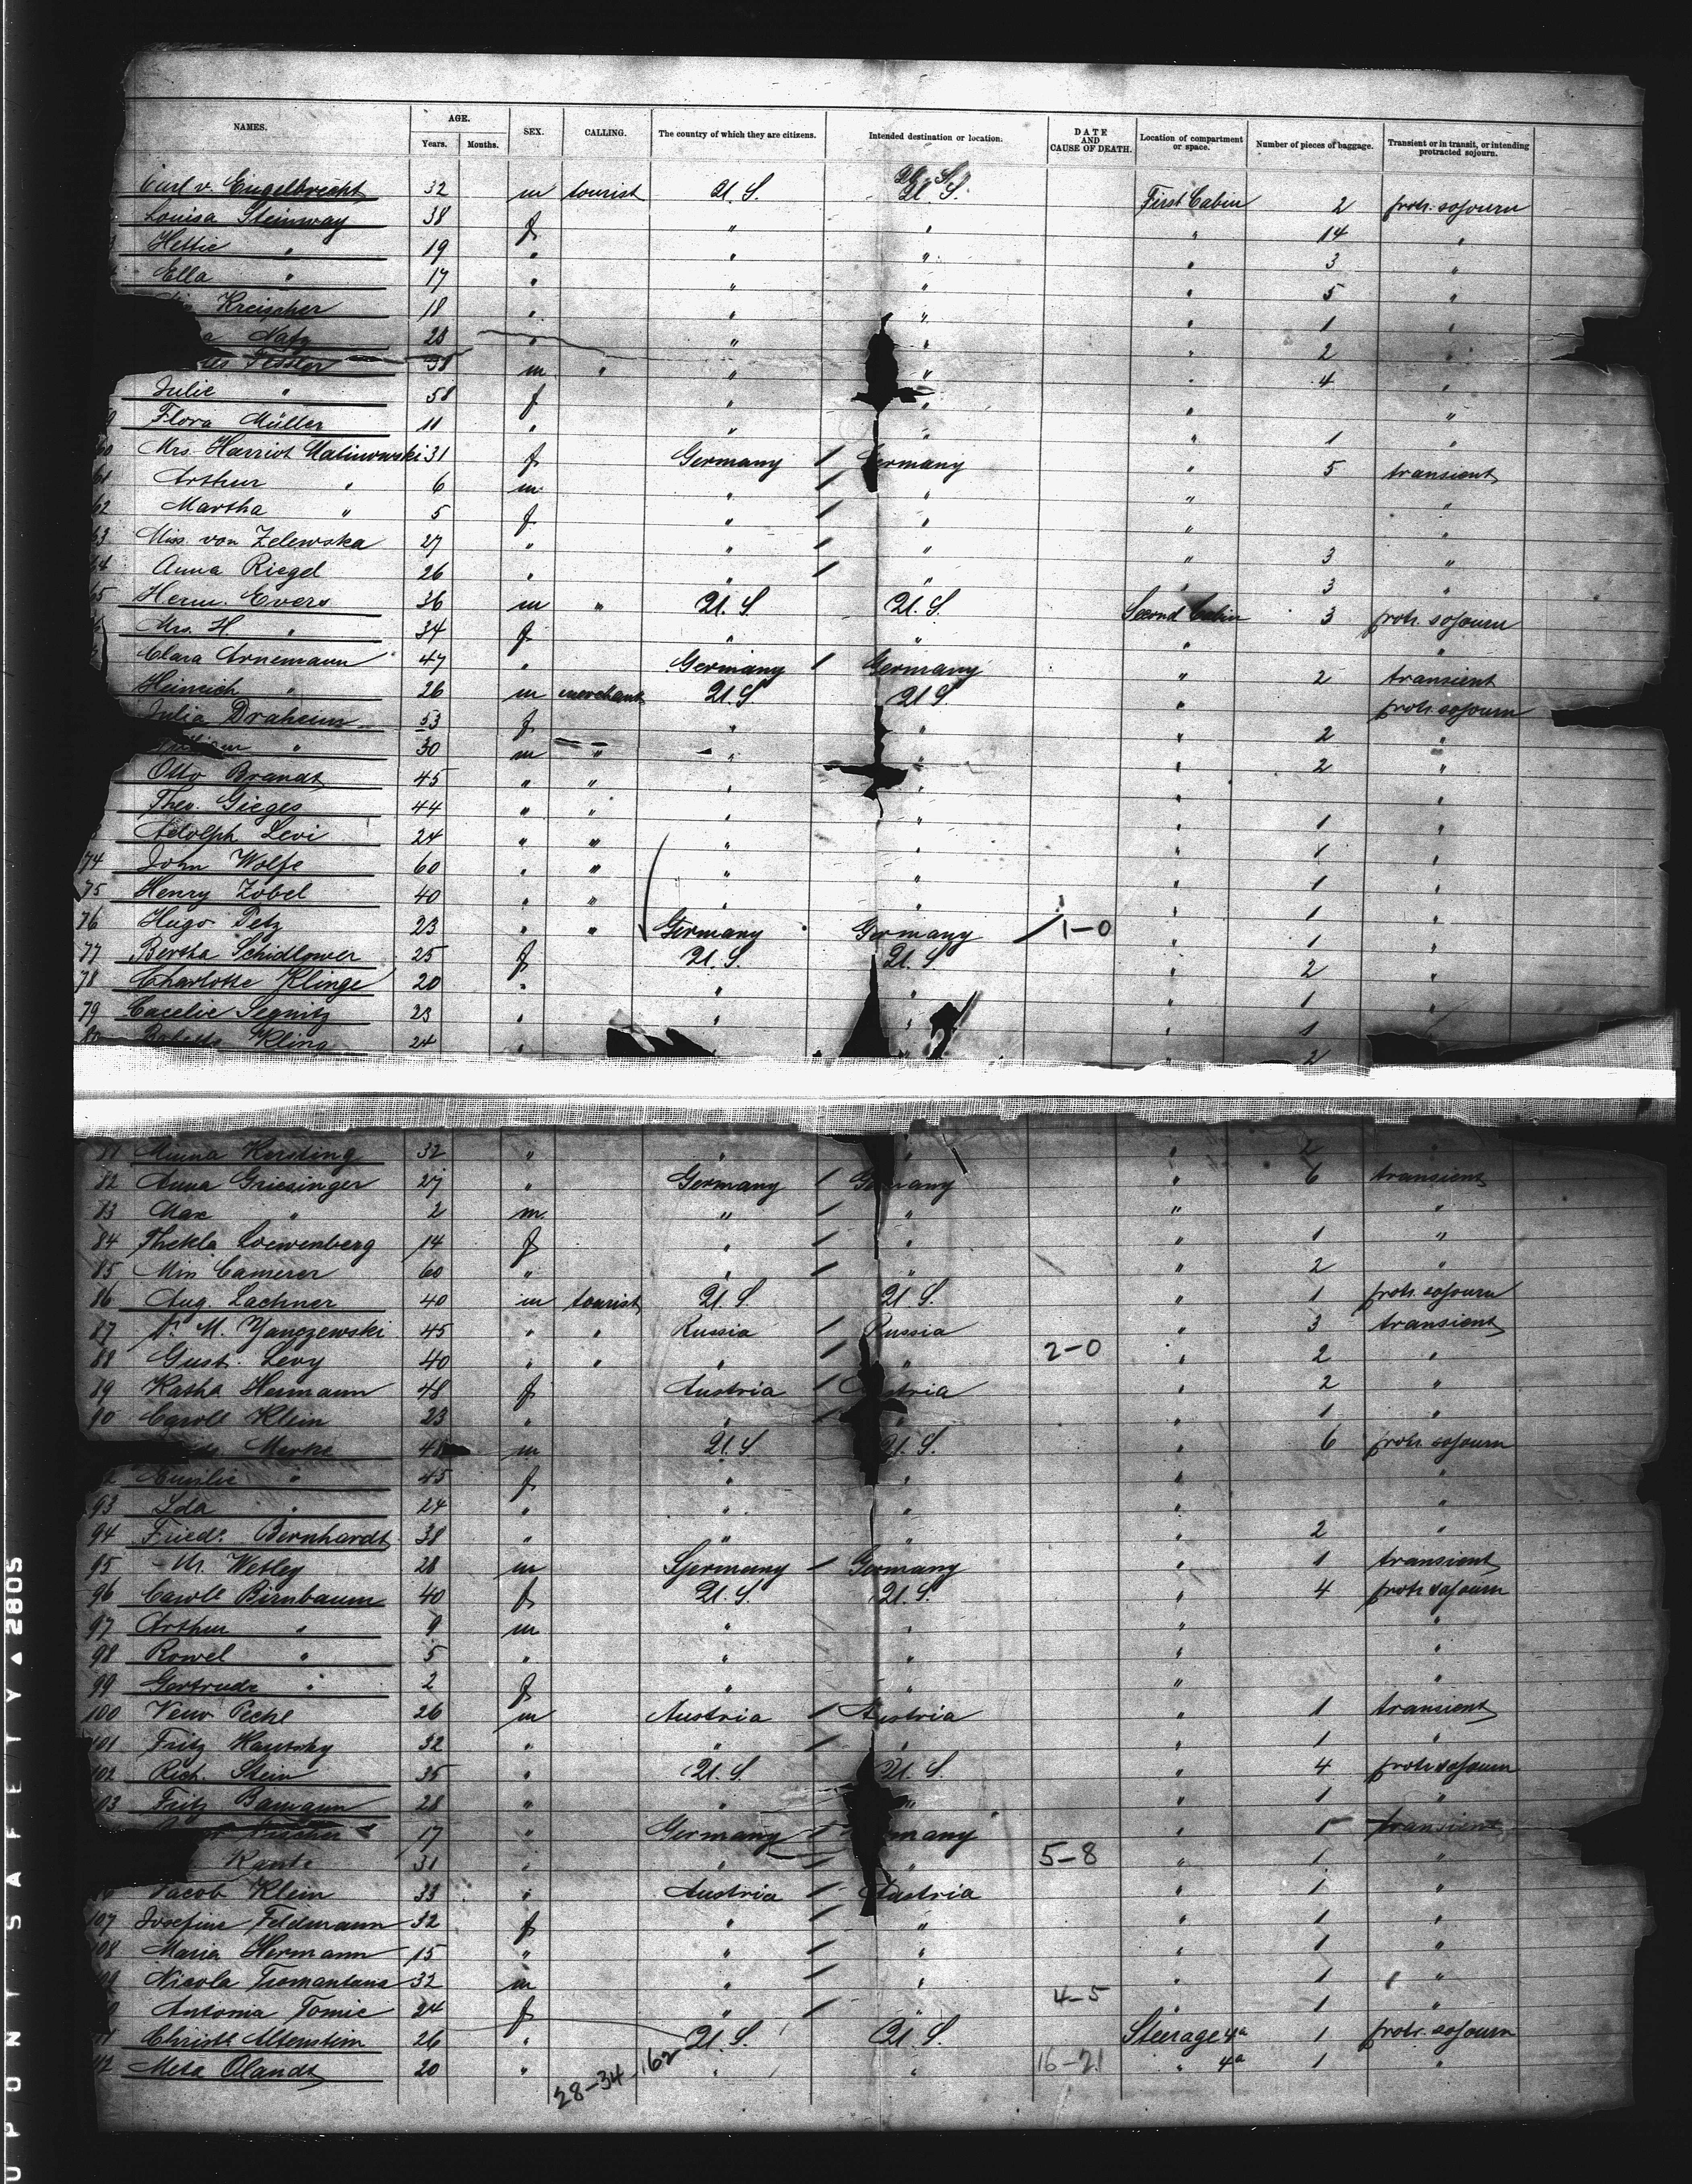 NAMES. AGE. Years. Months. SEX. CALLING. The country of which they are citizens. Intended destination or location. DATE AND CAUSE OF DEATH. Location of compartment or space. Number of pieces of baggage. Transient or in transit, or intending protracted sojourn.
U.S.
Carl v. Engelbrecht 32 m tourist U.S. U.S. First Cabin 2 protr. sojourn
Louisa Steinway 38 f " " " 14 "
Hettie " 19 " " " " 3 "
Ella " 17 " " " " 5 "
Kreischer 18 " " " " 1 "
28 " " " " 2 "
38 m " " " " 4 "
Julie " 58 f " " " "
Flora Müller 11 " " " " 1 "
60 Mrs. Harriot Malinowski 31 f Germany / Germany " 5 transient
61 Arthur " 6 m " / " " "
62 Martha " 5 f " / " " "
63 Miss von Zelewska 27 " " / " " 3 "
64 Anna Riegel 26 " " / " " 3 "
65 Herm. Evers 36 m " U.S. U.S. Second Cabin 3 protr. sojourn
Mrs. H. " 34 f " " " "
Clara Arnemann 47 " Germany / Germany " 2 transient
Heinrich " 26 m merchant U.S. U.S. " protr. sojourn
Julia Draheim 53 f " " " 2 "
" 30 m " " " " 2 "
Otto Brandt 45 " " " " " "
Theo. Gieges 44 " " " " " 1 "
Adolph Levi 24 " " " " " 1 "
74 John Wolfe 60 " " " " " 1 "
75 Henry Zobel 40 " " " " " 1 "
76 Hugo Petz 23 " " Germany Germany 1-0 " 1 "
77 Bertha Schidlower 25 f U.S. U.S. " 2 "
78 Charlotte Klinge 20 " " " " 1 "
79 Caecelie Segnitz 23 " " " " 1 "
80 Kling 24 " " " 2
81 Minna Kersting 32 " " " " 2 "
82 Anna Griesinger 27 " Germany / Germany " 6 transient
83 Max " 2 m " / " " "
84 Thekla Loewenberg 14 f " / " " 1 "
85 Miss Camerer 60 " " / " " 2 "
86 Aug. Lachner 40 m tourist U.S. U.S. " 1 protr. sojourn
87 M. Yanczewski 45 " " Russia / Russia " 3 transient
88 Gust. Levy 40 " " " / " 2-0 " 2 "
89 Katha Hermann 48 f Austria / Austria " 2 "
90 Caroll Klein 23 " " / " " 1 "
Merke 48 m U.S. U.S. " 6 protr. sojourn
Emilie " 45 f " " " "
93 Ida " 24 " " " " "
94 Friedr. Bernhardt 38 " " " " 2 "
95 M. Wetley 28 m Germany / Germany " 1 transient
96 Caroll Birnbaum 40 f U.S. U.S. " 4 protr. sojourn
97 Arthur " 9 m " " " "
98 Rowel " 5 " " " " "
99 Gertrude " 2 f " " " "
100 Pechl 26 m Austria / Austria " 1 transient
101 Fritz 32 " " / " " 1 "
102 Rich. Stein 35 " U.S. U.S. " 4 protr. sojourn
103 Fritz Bamann 28 " " " " 1 "
17 " Germany / Germany " 1 transient
31 " " / " 5-8 " 1 "
Jacob Klein 33 " Austria / Austria " 1 "
107 Josefine Feldmann 32 f " / " " 1 "
108 Maria Hermann 15 " " / " " 1 "
109 Nicola Tromantana 32 m " / " " 1 "
Antonia Tomie 24 f " / " 4-5 " 1 "
Christl Altenstein 26 " U.S. U.S. Steerage 4a 1 protr. sojourn
112 Meta Olandt 20 " " " 16-21 " 4a 1 "
28-34-162
UPONT SAFETY ▲ 2805